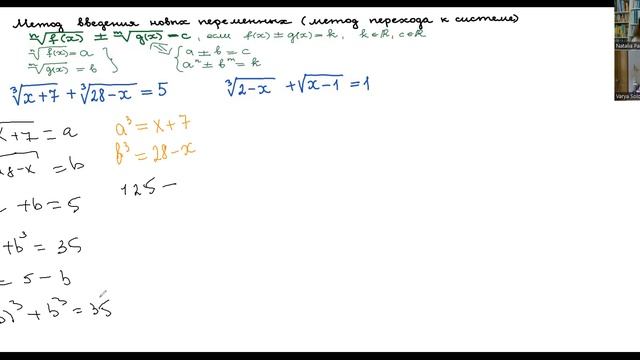 Метод введения новых переменных (метод перехода к системе)
ⁿ√f(x) ± ᵐ√g(x) = c, если f(x) ± g(x) = k, k∈R, c∈R
ⁿ√f(x) = a
ᵐ√g(x) = b
a ± b = c
aⁿ ± bᵐ = k
³√x+7 + ³√28-x = 5
³√2-x + √x-1 = 1
x+7 = a
8-x = b
+b = 5
+b³ = 35
= 5 - b
)³ + b³ = 35
a³ = x+7
b³ = 28-x
125 -
Natalia Pa
Varya Solo